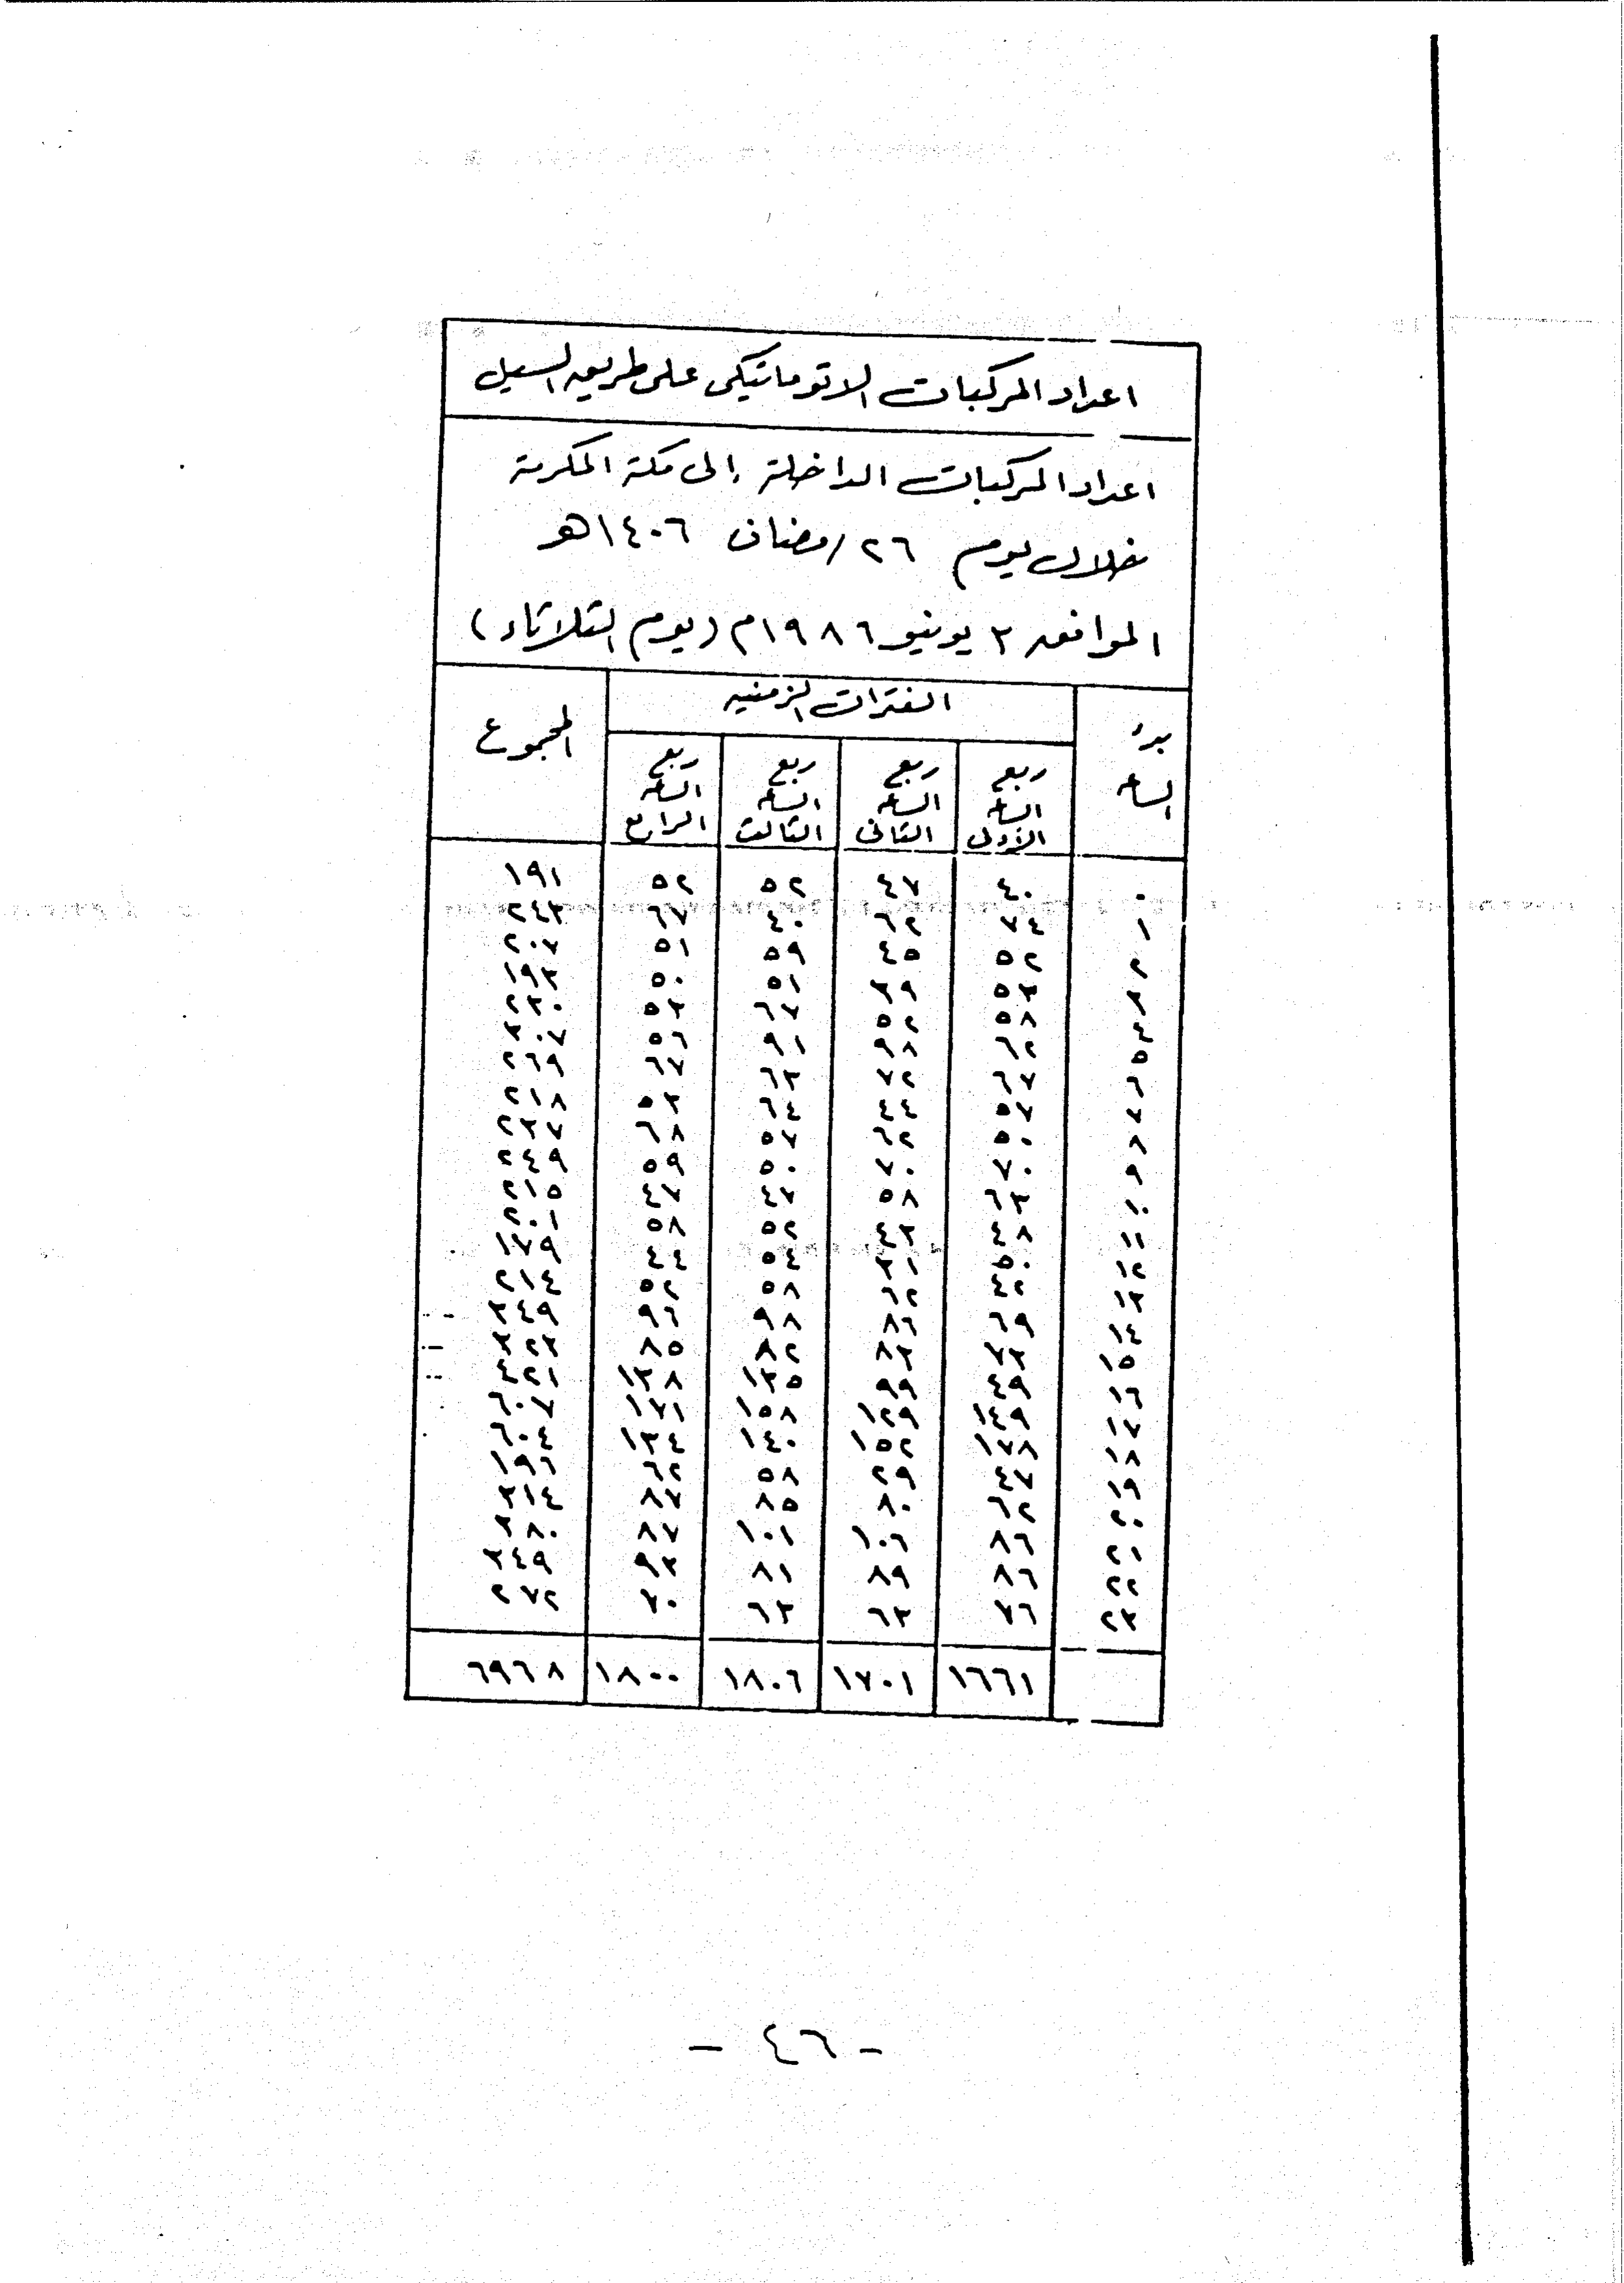 اعداد المركبات الاتوماتيكى على طريق السيل
اعداد المركبات الداخلة إلى مكة المكرمة
خلال يوم ٢٦ رمضان ١٤٠٦هـ
الموافق ٣ يونيو ١٩٨٦م (يوم الثلاثاء)
بدء الساعه الفترات الزمنيه المجموع
ربع الساعه الأولى ربع الساعه الثانى ربع الساعه الثالث ربع الساعه الرابع
٠ ٤٠ ٤٧ ٥٢ ٥٢ ١٩١
١ ٧٤ ٦٢ ٤٠ ٦٧ ٢٤٣
٢ ٥٢ ٤٥ ٥٩ ٥١ ٢٠٧
٣ ٥٣ ٣٩ ٥١ ٥٠ ١٩٣
٤ ٥٨ ٥٢ ٦٧ ٥٣ ٢٣٠
٥ ٦٢ ٩٨ ٩١ ٥٦ ٣٠٧
٦ ٦٧ ٧٢ ٦٣ ٦٧ ٢٦٩
٧ ٥٧ ٤٤ ٦٤ ٥٣ ٢١٨
٨ ٥٠ ٦٢ ٥٧ ٦٨ ٢٣٧
٩ ٧٠ ٧٠ ٥٠ ٥٩ ٢٤٩
١٠ ٦٣ ٥٨ ٤٧ ٤٧ ٢١٥
١١ ٤٨ ٤٣ ٥٢ ٥٨ ٢٠١
١٢ ٥٠ ٣١ ٥٤ ٤٤ ١٧٩
١٣ ٤٢ ٦٢ ٥٨ ٥٢ ٢١٤
١٤ ٦٩ ٨٦ ٩٨ ٩٦ ٣٤٩
١٥ ٧٣ ٨٣ ٨٢ ٨٥ ٣٢٣
١٦ ٤٩ ٩٩ ١٣٥ ١٣٨ ٤٢١
١٧ ١٤٩ ١٢٩ ١٥٨ ١٧١ ٦٠٧
١٨ ١٧٨ ١٥٢ ١٤٠ ١٣٤ ٦٠٤
١٩ ٤٧ ٢٩ ٥٨ ٦٢ ١٩٦
٢٠ ٦٢ ٨٠ ٨٥ ٨٧ ٣١٤
٢١ ٨٦ ١٠٦ ١٠١ ٨٧ ٣٨٠
٢٢ ٨٦ ٨٩ ٨١ ٩٣ ٣٤٩
٢٣ ٧٦ ٦٣ ٦٣ ٧٠ ٢٧٢
١٦٦١ ١٧٠١ ١٨٠٦ ١٨٠٠ ٦٩٦٨
- ٤٦ -